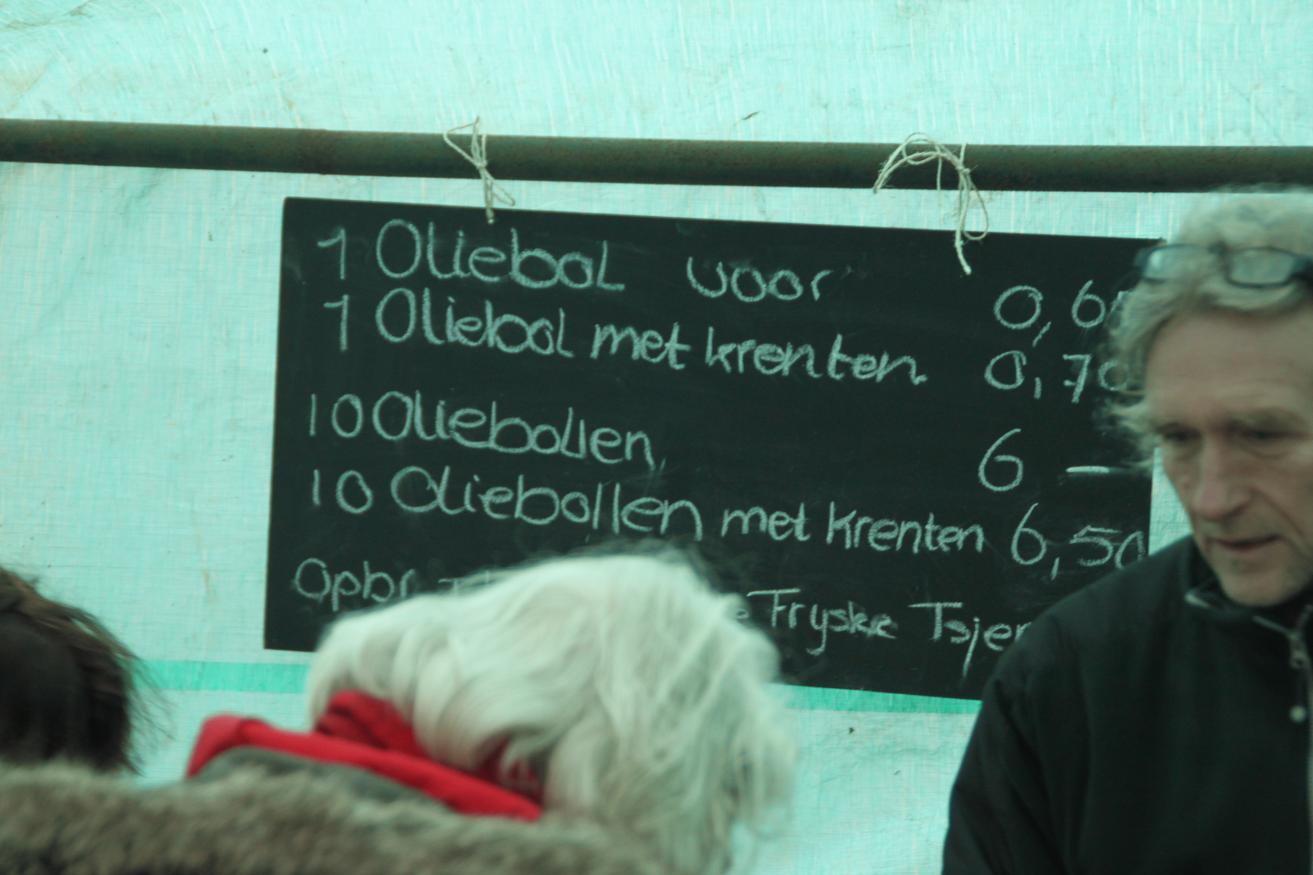 1 Oliebol voor 0,6
1 Oliebol met krenten. 0,70
10 Oliebollen, 6 —
10 Oliebollen met krenten 6,50
Fryske